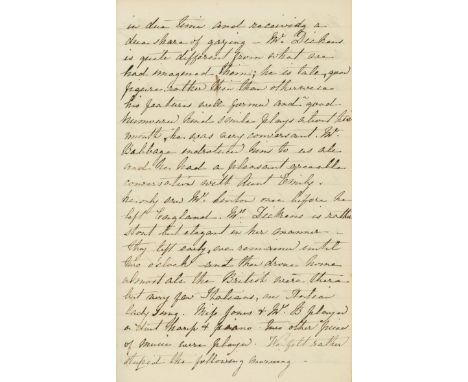 in due time and receiving a
due share of gazing - Mr. Dickens
is quite different from what we
had imagened him; he is tale, good
figure rather thin than otherwise
his features well formed and good
humoured kind smile plays about his
mouth, he was very conversant. Mr.
Babbage introduced him to us all
and he had a pleasant
conversation with Aunt Emily.
he only saw Mr. once before he
left England. Mrs. Dickens is rather
stout but elegant in her manner -
they left early, we remained until
two o'clock and then drove home
almost all the British were there
but very few Italians, one Italian
lady sung. Miss Jones & Mr. B played
a duet Harp & piano two other pieces
of music were played. We felt rather
stupid the following morning -